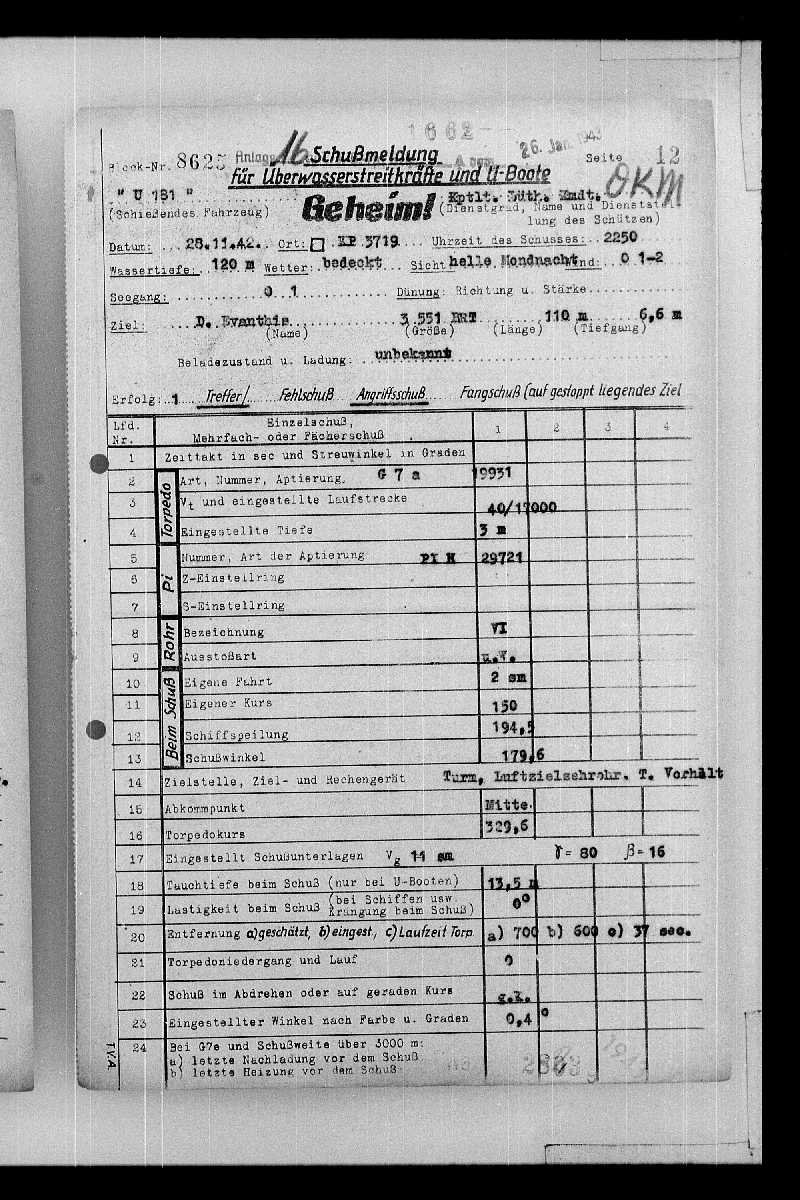 1662
26. Jan. 1943
Block-Nr. 8625 Anlage 16 Schußmeldung Seite 12
für Überwasserstreitkräfte und U-Boote
" U 181 " Kptlt. Lüth. Kmdt. OKM
(Schießendes Fahrzeug) Geheim! (Dienstgrad, Name und Dienststellung des Schützen)
Datum: 28.11.42. Ort: □ KP 3719 Uhrzeit des Schusses: 2250
Wassertiefe: 120 m Wetter: bedeckt Sicht helle Mondnacht ind: 0 1-2
Seegang: 0 1 Dünung: Richtung u. Stärke
Ziel: D. Evanthia 3 551 BRT 110 m 6,6 m
(Name) (Größe) (Länge) (Tiefgang)
Beladezustand u. Ladung: unbekannt
Erfolg: 1 Treffer/ Fehlschuß Angriffsschuß Fangschuß (auf gestoppt liegendes Ziel
Lfd. Nr. Einzelschuß, Mehrfach- oder Fächerschuß 1 2 3 4
1 Zeittakt in sec und Streuwinkel in Graden
Torpedo
2 Art, Nummer, Aptierung. G 7 a 19931
3 Vt und eingestellte Laufstrecke 40/17000
4 Eingestellte Tiefe 3 m
Pi
5 Nummer, Art der Aptierung PI H 29721
6 Z-Einstellring
7 S-Einstellring
Rohr
8 Bezeichnung VI
9 Ausstoßart u.V.
Beim Schuß
10 Eigene Fahrt 2 sm
11 Eigener Kurs 150
12 Schiffspeilung 194,5
13 Schußwinkel 179,6
14 Zielstelle, Ziel- und Rechengerät Turm, Luftzielsehrohr. T. Vorhalt
15 Abkommpunkt Mitte.
16 Torpedokurs 329,6
17 Eingestellt Schußunterlagen Vg 11 sm γ= 80 β= 16
18 Tauchtiefe beim Schuß (nur bei U-Booten) 13,5 m
19 Lastigkeit beim Schuß (bei Schiffen usw. Krängung beim Schuß) 0°
20 Entfernung a) geschätzt, b) eingest., c) Laufzeit Torp. a) 700 b) 600 c) 37 sec.
21 Torpedoniedergang und Lauf 0
22 Schuß im Abdrehen oder auf geraden Kurs g.K.
23 Eingestellter Winkel nach Farbe u. Graden 0,4°
24 Bei G7e und Schußweite über 3000 m:
a) letzte Nachladung vor dem Schuß
b) letzte Heizung vor dem Schuß
TVA